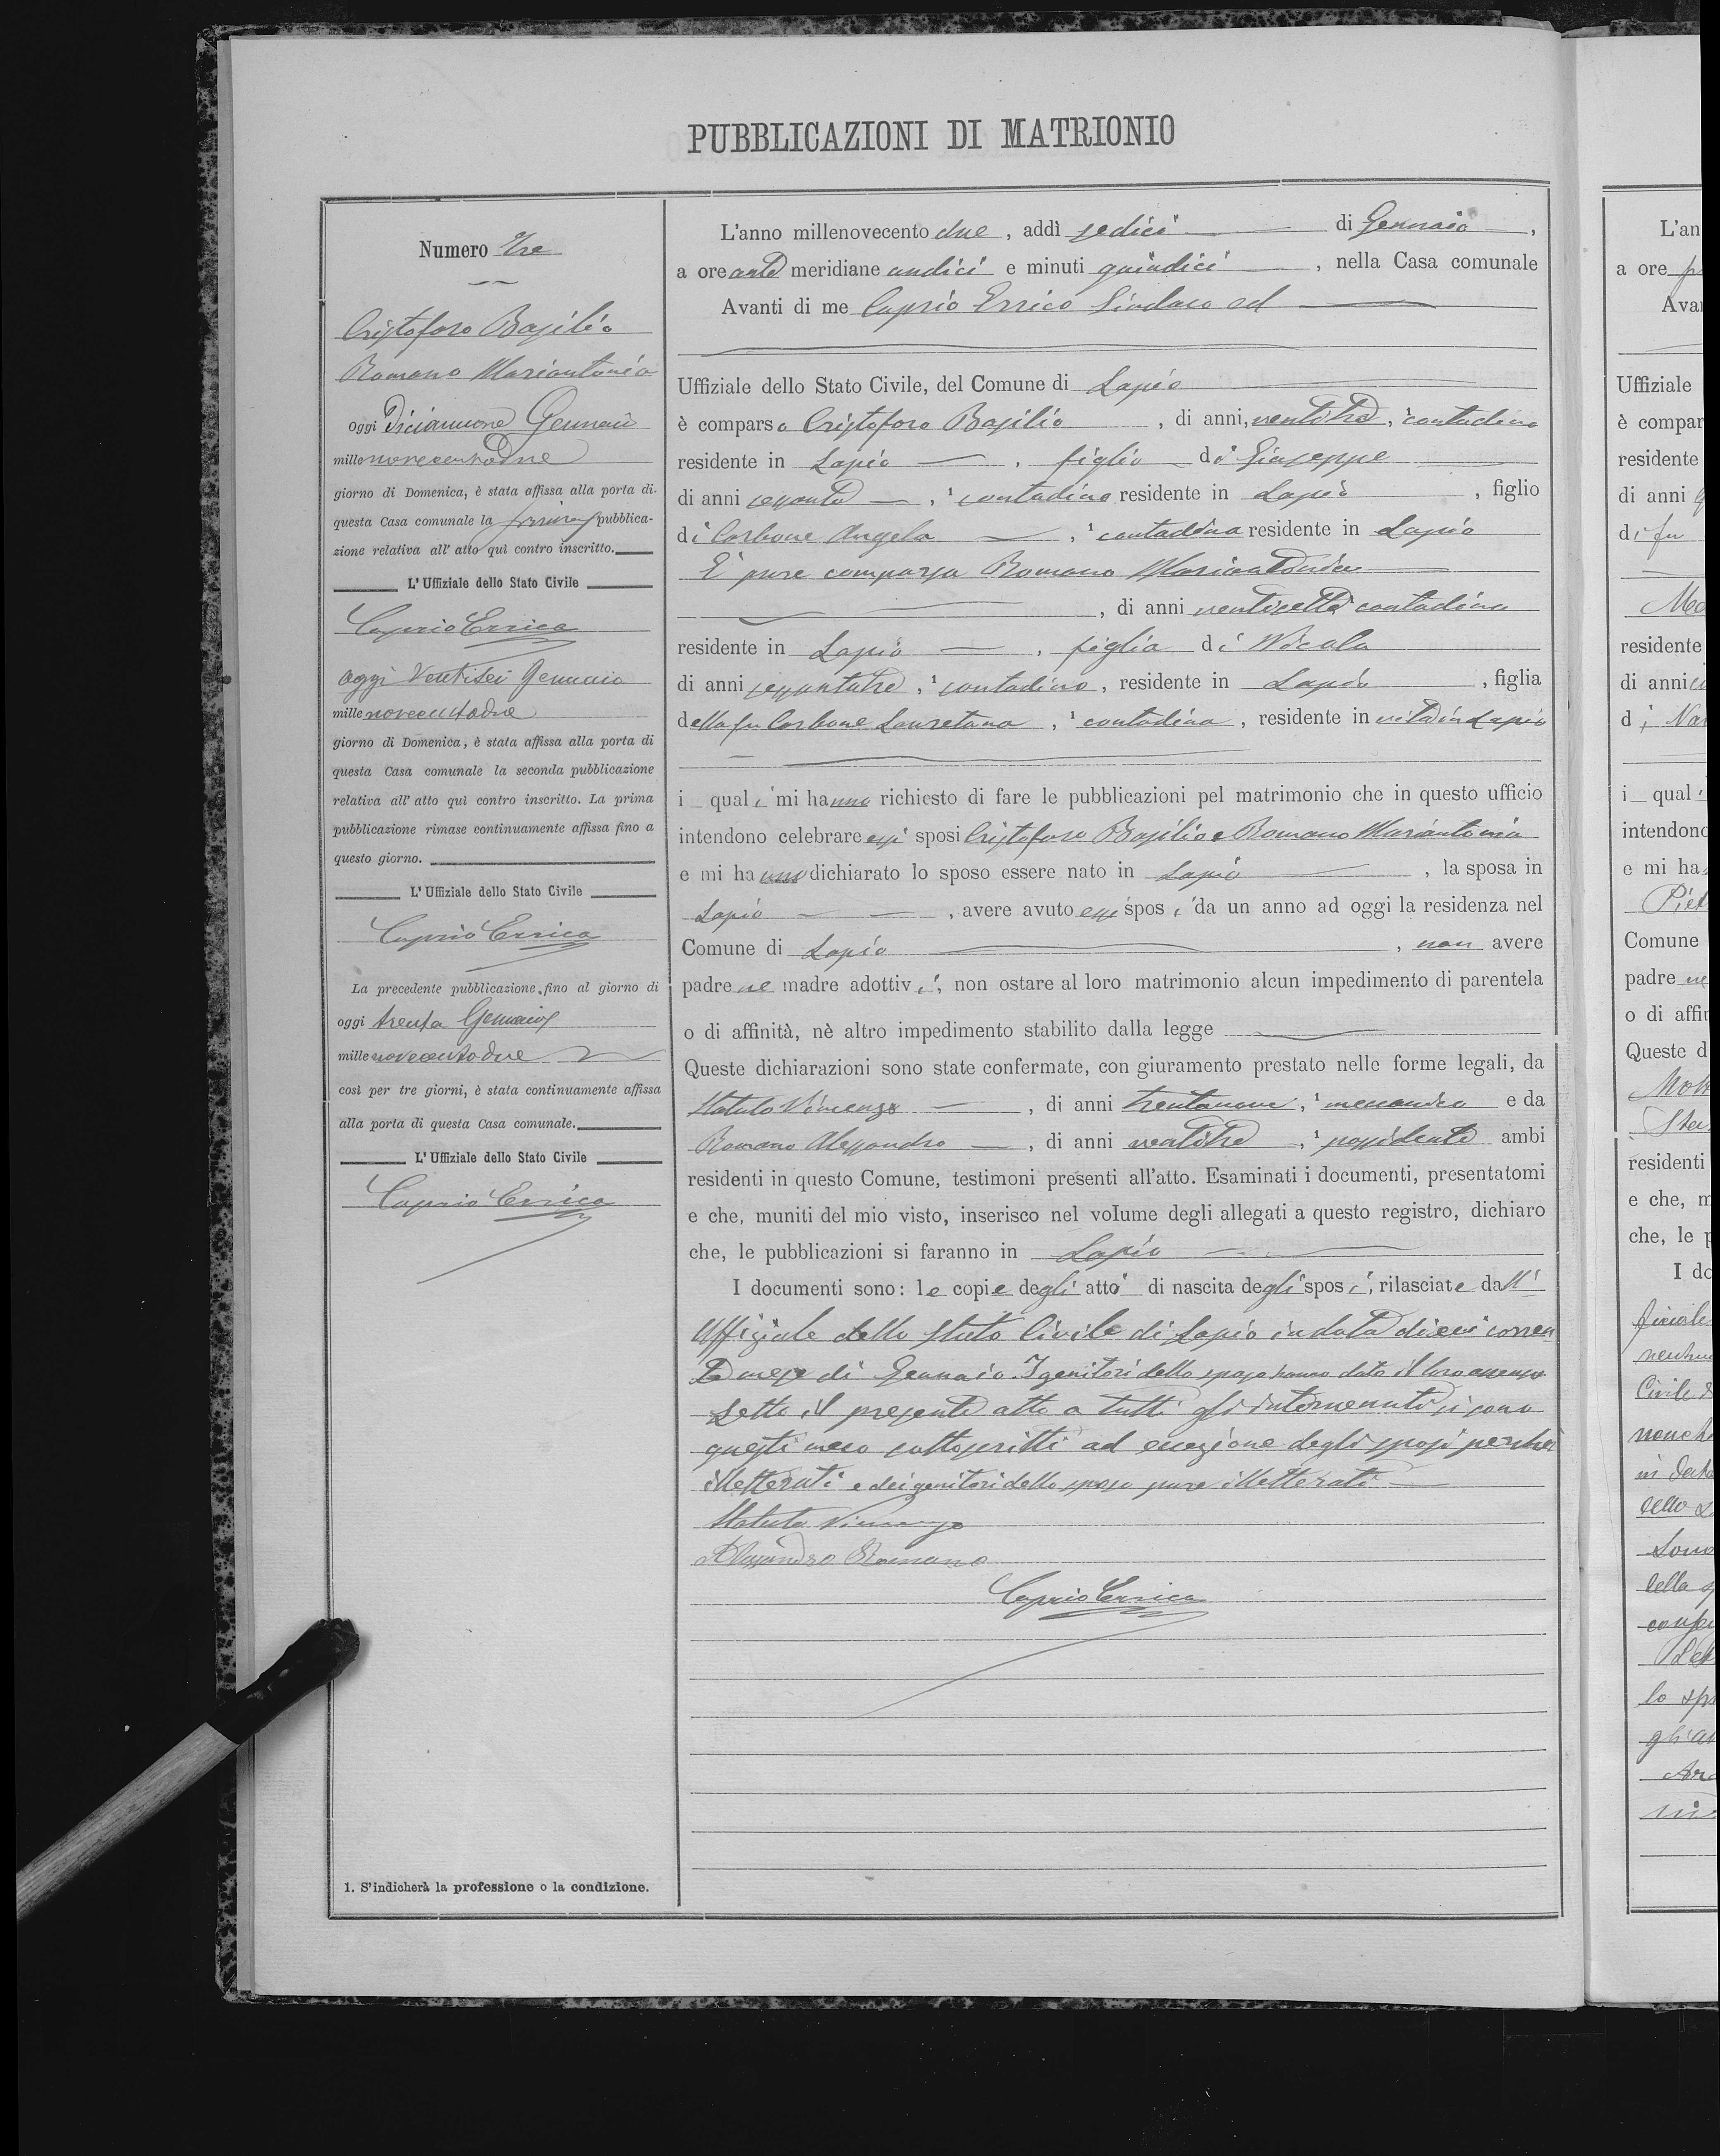 PUBBLICAZIONI DI MATRIONIO
Numero Tre
Cristoforo Basilio
Romano Mariantonia
oggi Diciannove Gennaio
mille novecentodue
giorno di Domenica, è stata affissa alla porta di
questa Casa comunale la prima pubblica-
zione relativa all' atto quì contro inscritto.
L' Uffiziale dello Stato Civile
Caprio Errico
oggi Ventisei Gennaio
mille novecentodue
giorno di Domenica, è stata affissa alla porta di
questa Casa comunale la seconda pubblicazione
relativa all' atto quì contro inscritto. La prima
pubblicazione rimase continuamente affissa fino a
questo giorno.
L' Uffiziale dello Stato Civile
Caprio Errico
La precedente pubblicazione fino al giorno di
oggi trenta Gennaio
mille novecentodue
così per tre giorni, è stata continuamente affissa
alla porta di questa Casa comunale.
L' Uffiziale dello Stato Civile
Caprio Errico
1. S'indicherà la professione o la condizione.
L'anno millenovecento due, addì sedici di Gennaio,
a ore ante meridiane undici e minuti quindici, nella Casa comunale
Avanti di me Caprio Errico Sindaco ed
Uffiziale dello Stato Civile, del Comune di Lapio
è comparso Cristoforo Basilio, di anni, ventitre, ¹ contadino
residente in Lapio, figlio di Giuseppe
di anni sessanta, ¹ contadino residente in Lapio, figlio
di Carbone Angela, ¹ contadina residente in Lapio
E' pure comparsa Romano Mariantonia
, di anni ventisette contadina
residente in Lapio, figlia di Nicola
di anni sessantatre, ¹ contadino, residente in Lapio, figlia
della fu Carbone Lauretana, ¹ contadina, residente in vita in Lapio
i quali mi hanno richiesto di fare le pubblicazioni pel matrimonio che in questo ufficio
intendono celebrare essi sposi Cristoforo Basilio e Romano Mariantonia
e mi hanno dichiarato lo sposo essere nato in Lapio, la sposa in
Lapio, avere avuto essi sposi da un anno ad oggi la residenza nel
Comune di Lapio, non avere
padre ne madre adottivi, non ostare al loro matrimonio alcun impedimento di parentela
o di affinità, nè altro impedimento stabilito dalla legge
Queste dichiarazioni sono state confermate, con giuramento prestato nelle forme legali, da
Statuto Vincenzo, di anni trentanove, ¹ e da
Romano Alessandro, di anni ventitre, ¹ possidente ambi
residenti in questo Comune, testimoni presenti all'atto. Esaminati i documenti, presentatomi
e che, muniti del mio visto, inserisco nel volume degli allegati a questo registro, dichiaro
che, le pubblicazioni si faranno in Lapio
I documenti sono: le copie degli atti di nascita degli sposi, rilasciate dall'
Uffiziale dello Stato Civile di Lapio in data dieci corren
te mese di Gennaio. I genitori dello sposo hanno dato il loro assenso
Letto il presente atto a tutti gli intervenuti si sono
questi meco sottoscritti ad eccezione degli sposi perchè
illetterati e dei genitori dello sposo pure illetterati
Statuto Vincenzo
Alessandro Romano
Caprio Errico
L'an
a ore
Avan
Uffiziale
è compar
residente
di anni
di fu
residente
di anni
di
i quali
intendono
e mi ha
Comune
padre
o di affin
Queste d
residenti
e che, m
che, le p
I do
Civile